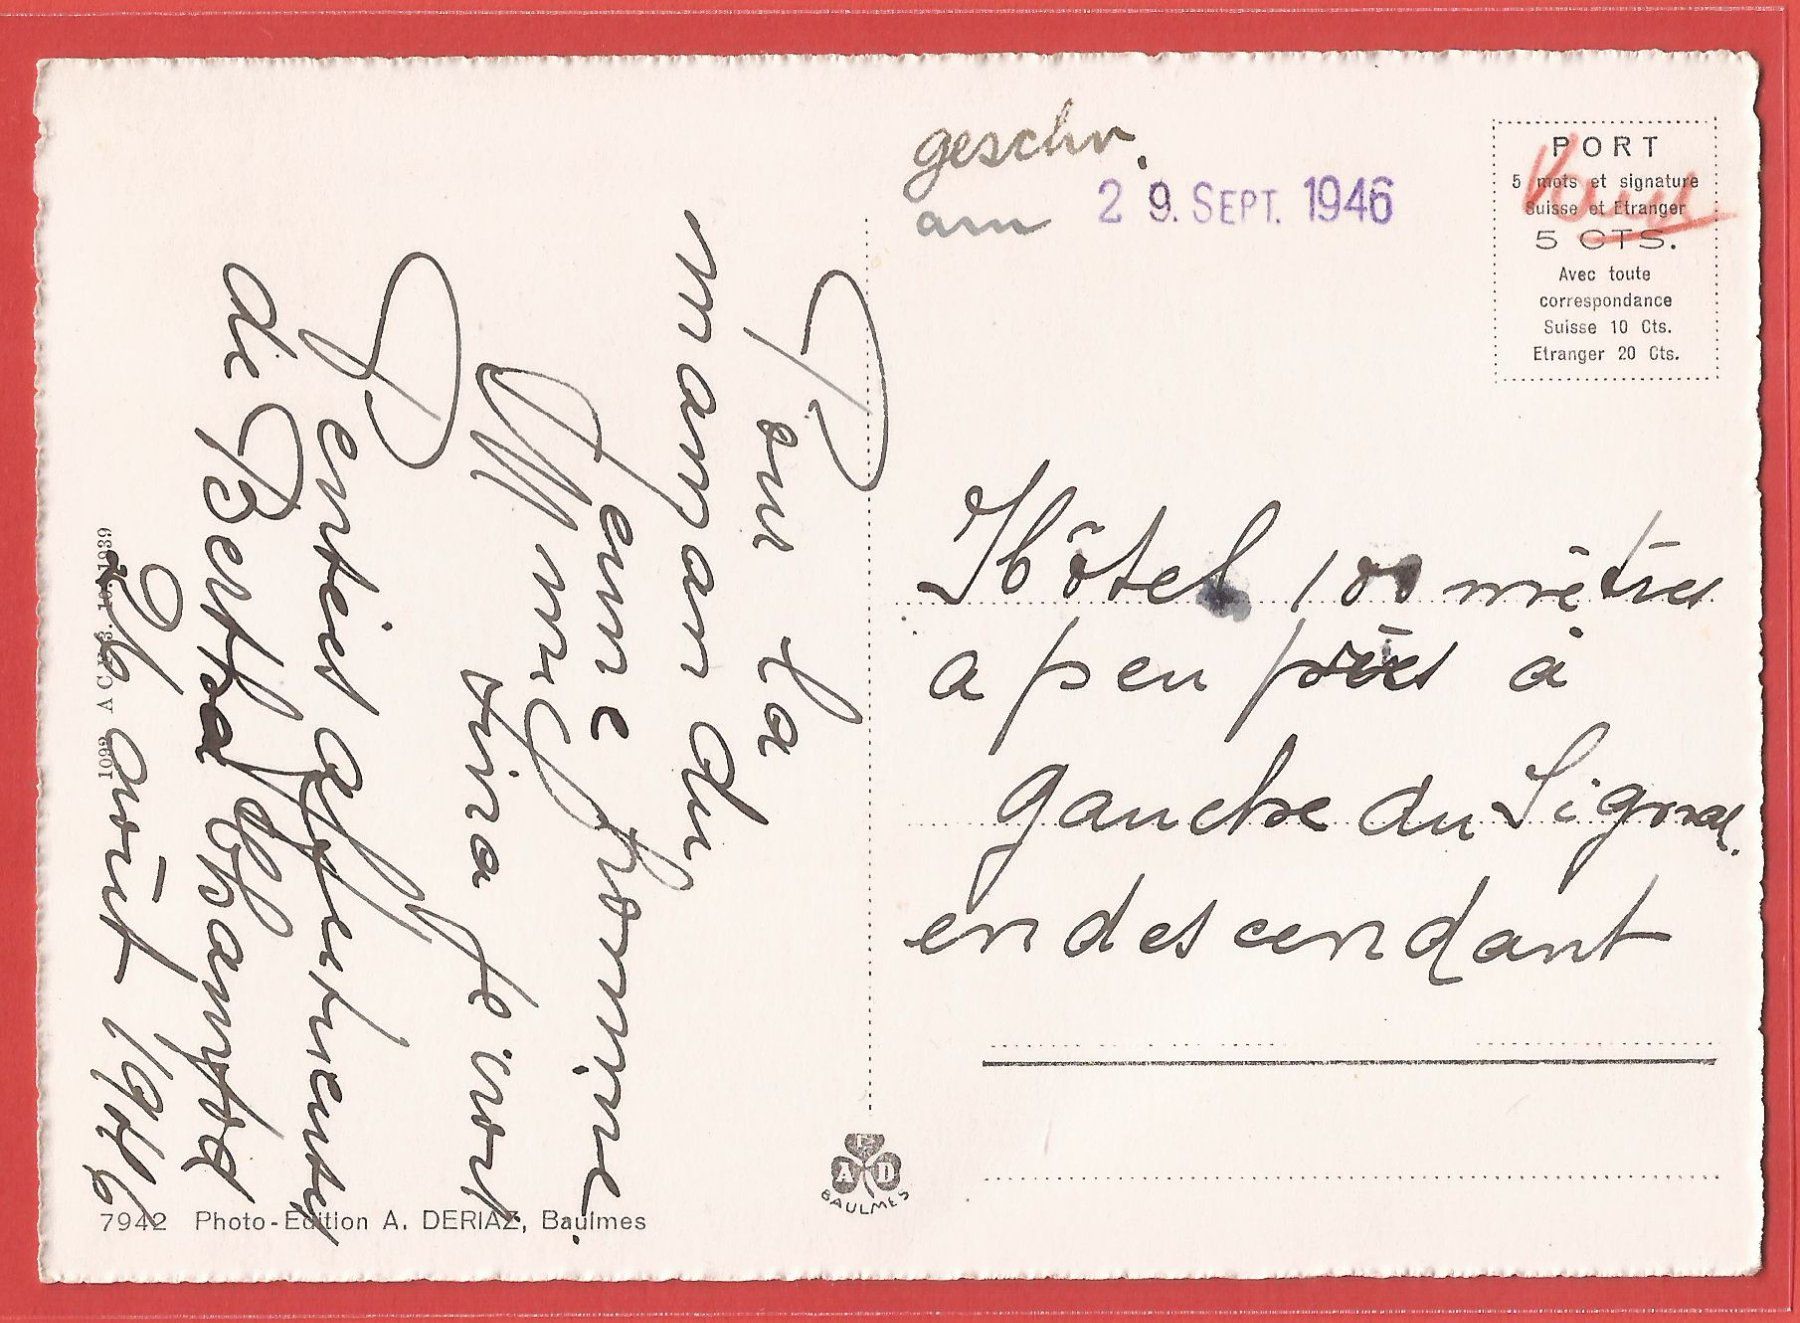 Pour la
maman du
jeune homme.
Mme
vira
Pensées affectueuses
de Bertha Champod
26 août 1946
geschr.
am 29. SEPT. 1946
PORT
5 mots et signature
Suisse et Etranger
5 CTS.
Avec toute
correspondance
Suisse 10 Cts.
Etranger 20 Cts.
Hôtel 100 mètres
a peu près à
gauche du Signal.
en descendant
1092 A C
1939
A D
BAULMES
7942 Photo-Edition A. DERIAZ, Baulmes